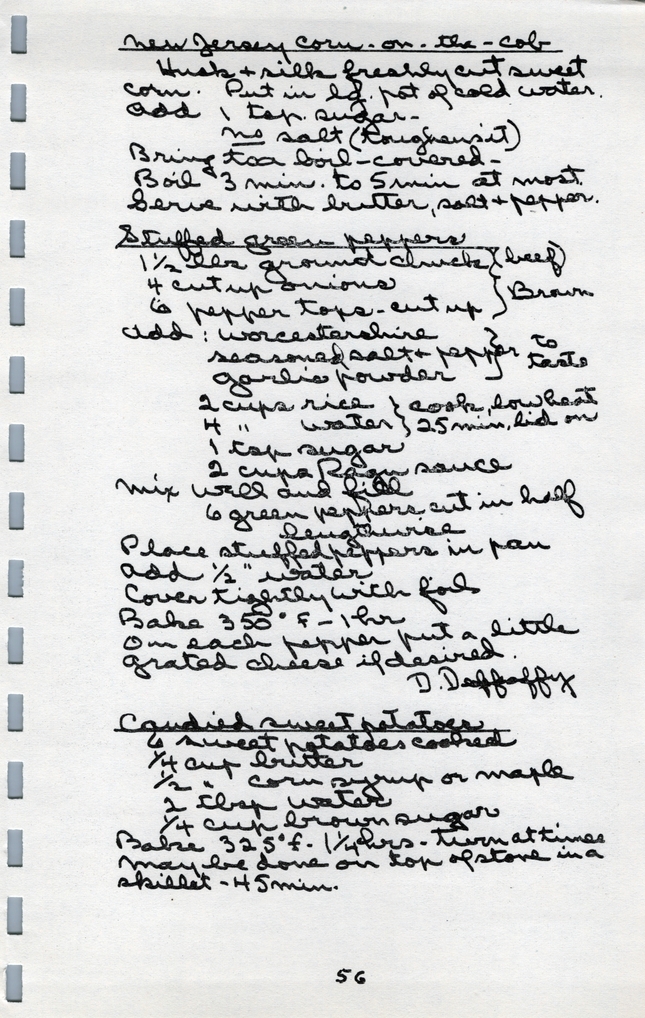 New Jersey corn-on-the-cob
Husk + silk freshly cut sweet
corn. Put in lg. pot of cold water.
Add 1 tsp. sugar-
no salt (toughens it)
Bring to a boil-covered-
Boil 3 min. to 5 min at most.
Serve with butter, salt + pepper.
Stuffed green peppers
1 1/2 lbs ground chuck (beef)
4 cut up onions } Brown
6 pepper tops-cut up
Add: Worcestershire
seasoned salt + pepper } to taste
garlic powder
2 cups rice } cook, low heat
4 " water } 25 min, lid on
1 tsp sugar
2 cups Ragu sauce
Mix well and fill
6 green peppers cut in half
lengthwise
Place stuffed peppers in pan
Add 1/2" water
Cover tightly with foil
Bake 350° F - 1 hr
On each pepper put a little
grated cheese if desired.
D. Deffaffy
Candied sweet potatoes
6 sweet potatoes cooked
1/4 cup butter
1/2 " corn syrup or maple
2 tbsp water
1/4 cup brown sugar
Bake 325° f - 1 1/4 hrs - turn at times
may be done on top of stove in a
skillet - 45 min.
56